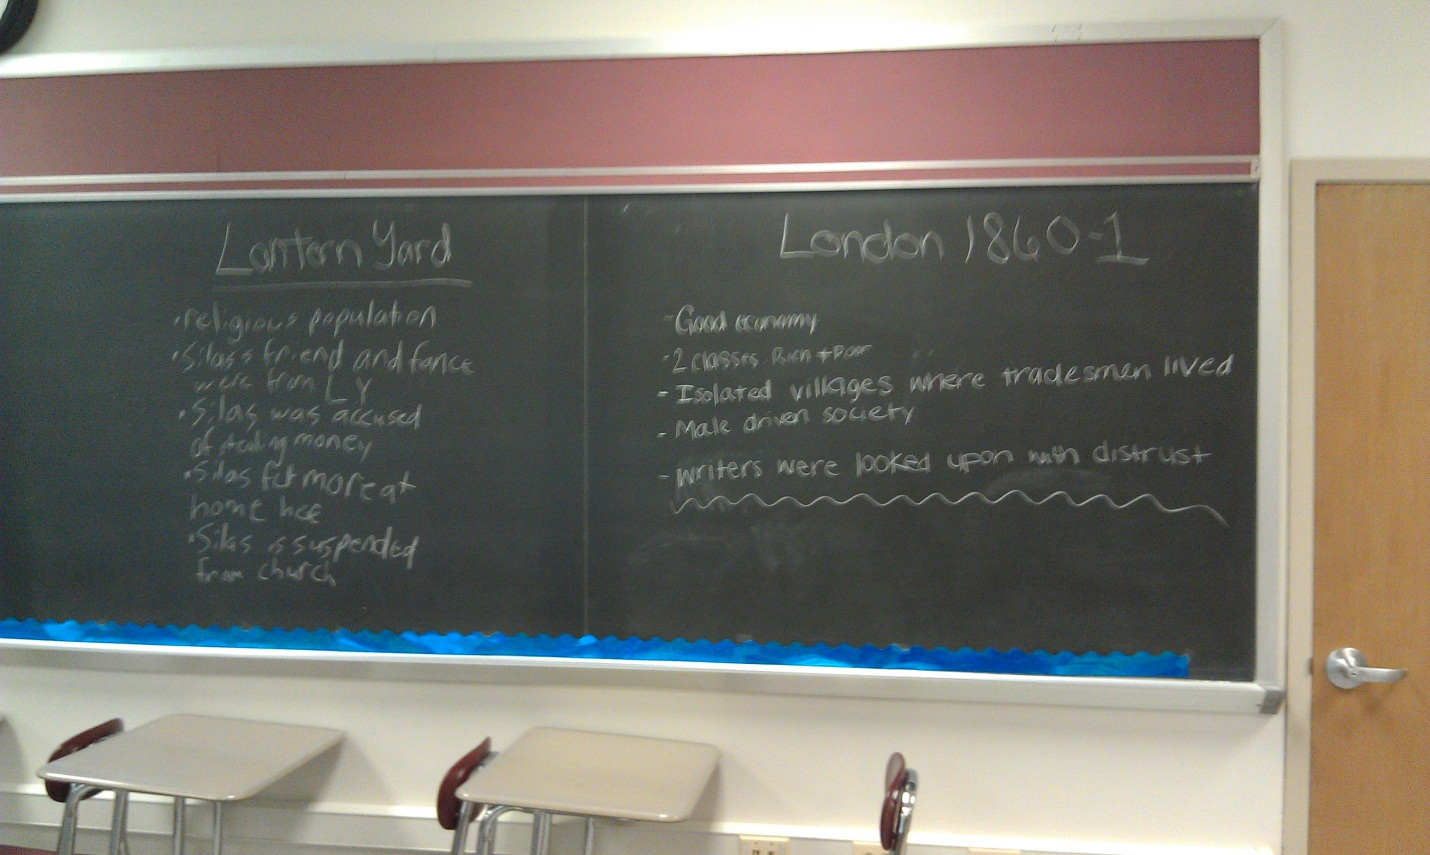 Lantern Yard
• religious population
• Silas's friend and fance
were from LY
• Silas was accused
of stealing money
• Silas felt more at
home hee
• Silas is suspended
from church
London 1860-1
- Good economy
- 2 classes Rich + Poor
- Isolated villages where tradesmen lived
- Male driven society
- writers were looked upon with distrust